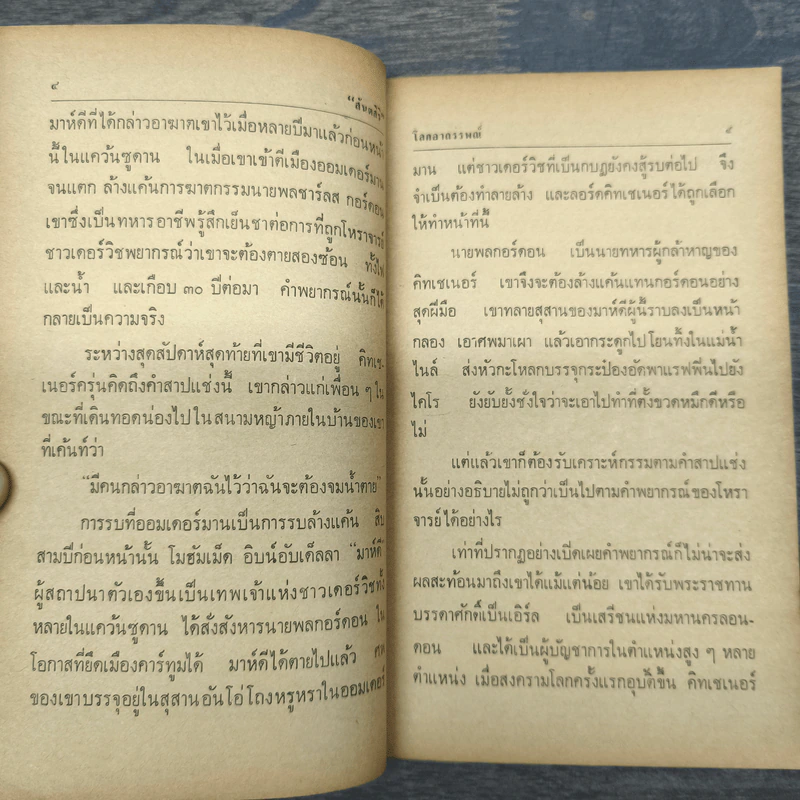 ๔
มาห์ดีที่ได้กล่าวอาฆาตเขาไว้เมื่อหลายปีมาแล้วก่อนหน้า
นี้ในแคว้นซูดาน ในเมื่อเขาเข้าตีเมืองออมเดอร์มาน
จนแตก ล้างแค้นการฆาตกรรมนายพลชาร์ลส กอร์ดอน
เขาซึ่งเป็นทหารอาชีพรู้สึกเย็นชาต่อการที่ถูกโหราจารย์
ชาวเดอร์วิชพยากรณ์ว่าเขาจะต้องตายสองซ้อน ทั้งไฟ
และน้ำ และเกือบ ๓๐ ปีต่อมา คำพยากรณ์นั้นก็ได้
กลายเป็นความจริง
ระหว่างสุดสัปดาห์สุดท้ายที่เขามีชีวิตอยู่ คิทเช-
เนอร์ครุ่นคิดถึงคำสาปแช่งนี้ เขากล่าวแก่เพื่อน ๆ ใน
ขณะที่เดินทอดน่องไปในสนามหญ้าภายในบ้านของเขา
ที่เค้นท์ว่า
“มีคนกล่าวอาฆาตฉันไว้ว่าฉันจะต้องจมน้ำตาย”
การรบที่ออมเดอร์มานเป็นการรบล้างแค้น สิบ
สามปีก่อนหน้านั้น โมฮัมเม็ด อิบน์อับเด็ลลา “มาห์ดี”
ผู้สถาปนาตัวเองขึ้นเป็นเทพเจ้าแห่งชาวเดอร์วิชทั้ง
หลายในแคว้นซูดาน ได้สั่งสังหารนายพลกอร์ดอน ใน
โอกาสที่ยึดเมืองคาร์ทูมได้ มาห์ดีได้ตายไปแล้ว ศพ
ของเขาบรรจุอยู่ในสุสานอันโอ่โถงหรูหราในออมเดอร์
โลกอาถรรพณ์ ๕
มาน แต่ชาวเดอร์วิชที่เป็นกบฏยังคงสู้รบต่อไป จึง
จำเป็นต้องทำลายล้าง และลอร์ดคิทเชเนอร์ได้ถูกเลือก
ให้ทำหน้าที่นี้
นายพลกอร์ดอน เป็นนายทหารผู้กล้าหาญของ
คิทเชเนอร์ เขาจึงจะต้องล้างแค้นแทนกอร์ดอนอย่าง
สุดฝีมือ เขาทลายสุสานของมาห์ดีผู้นี้ราบลงเป็นหน้า
กลอง เอาศพมาเผา แล้วเอากระดูกไปโยนทิ้งในแม่น้ำ
ไนล์ ส่งหัวกะโหลกบรรจุกระป๋องอัดพาแรฟฟินไปยัง
ไคโร ยังยับยั้งชั่งใจว่าจะเอาไปทำที่ตั้งขวดหมึกดีหรือ
ไม่
แต่แล้วเขาก็ต้องรับเคราะห์กรรมตามคำสาปแช่ง
นั้นอย่างอธิบายไม่ถูกว่าเป็นไปตามคำพยากรณ์ของโหรา
จารย์ได้อย่างไร
เท่าที่ปรากฏอย่างเปิดเผยคำพยากรณ์ก็ไม่น่าจะส่ง
ผลสะท้อนมาถึงเขาได้แม้แต่น้อย เขาได้รับพระราชทาน
บรรดาศักดิ์เป็นเอิร์ล เป็นเสรีชนแห่งมหานครลอน-
ดอน และได้เป็นผู้บัญชาการในตำแหน่งสูง ๆ หลาย
ตำแหน่ง เมื่อสงครามโลกครั้งแรกอุบัติขึ้น คิทเชเนอร์